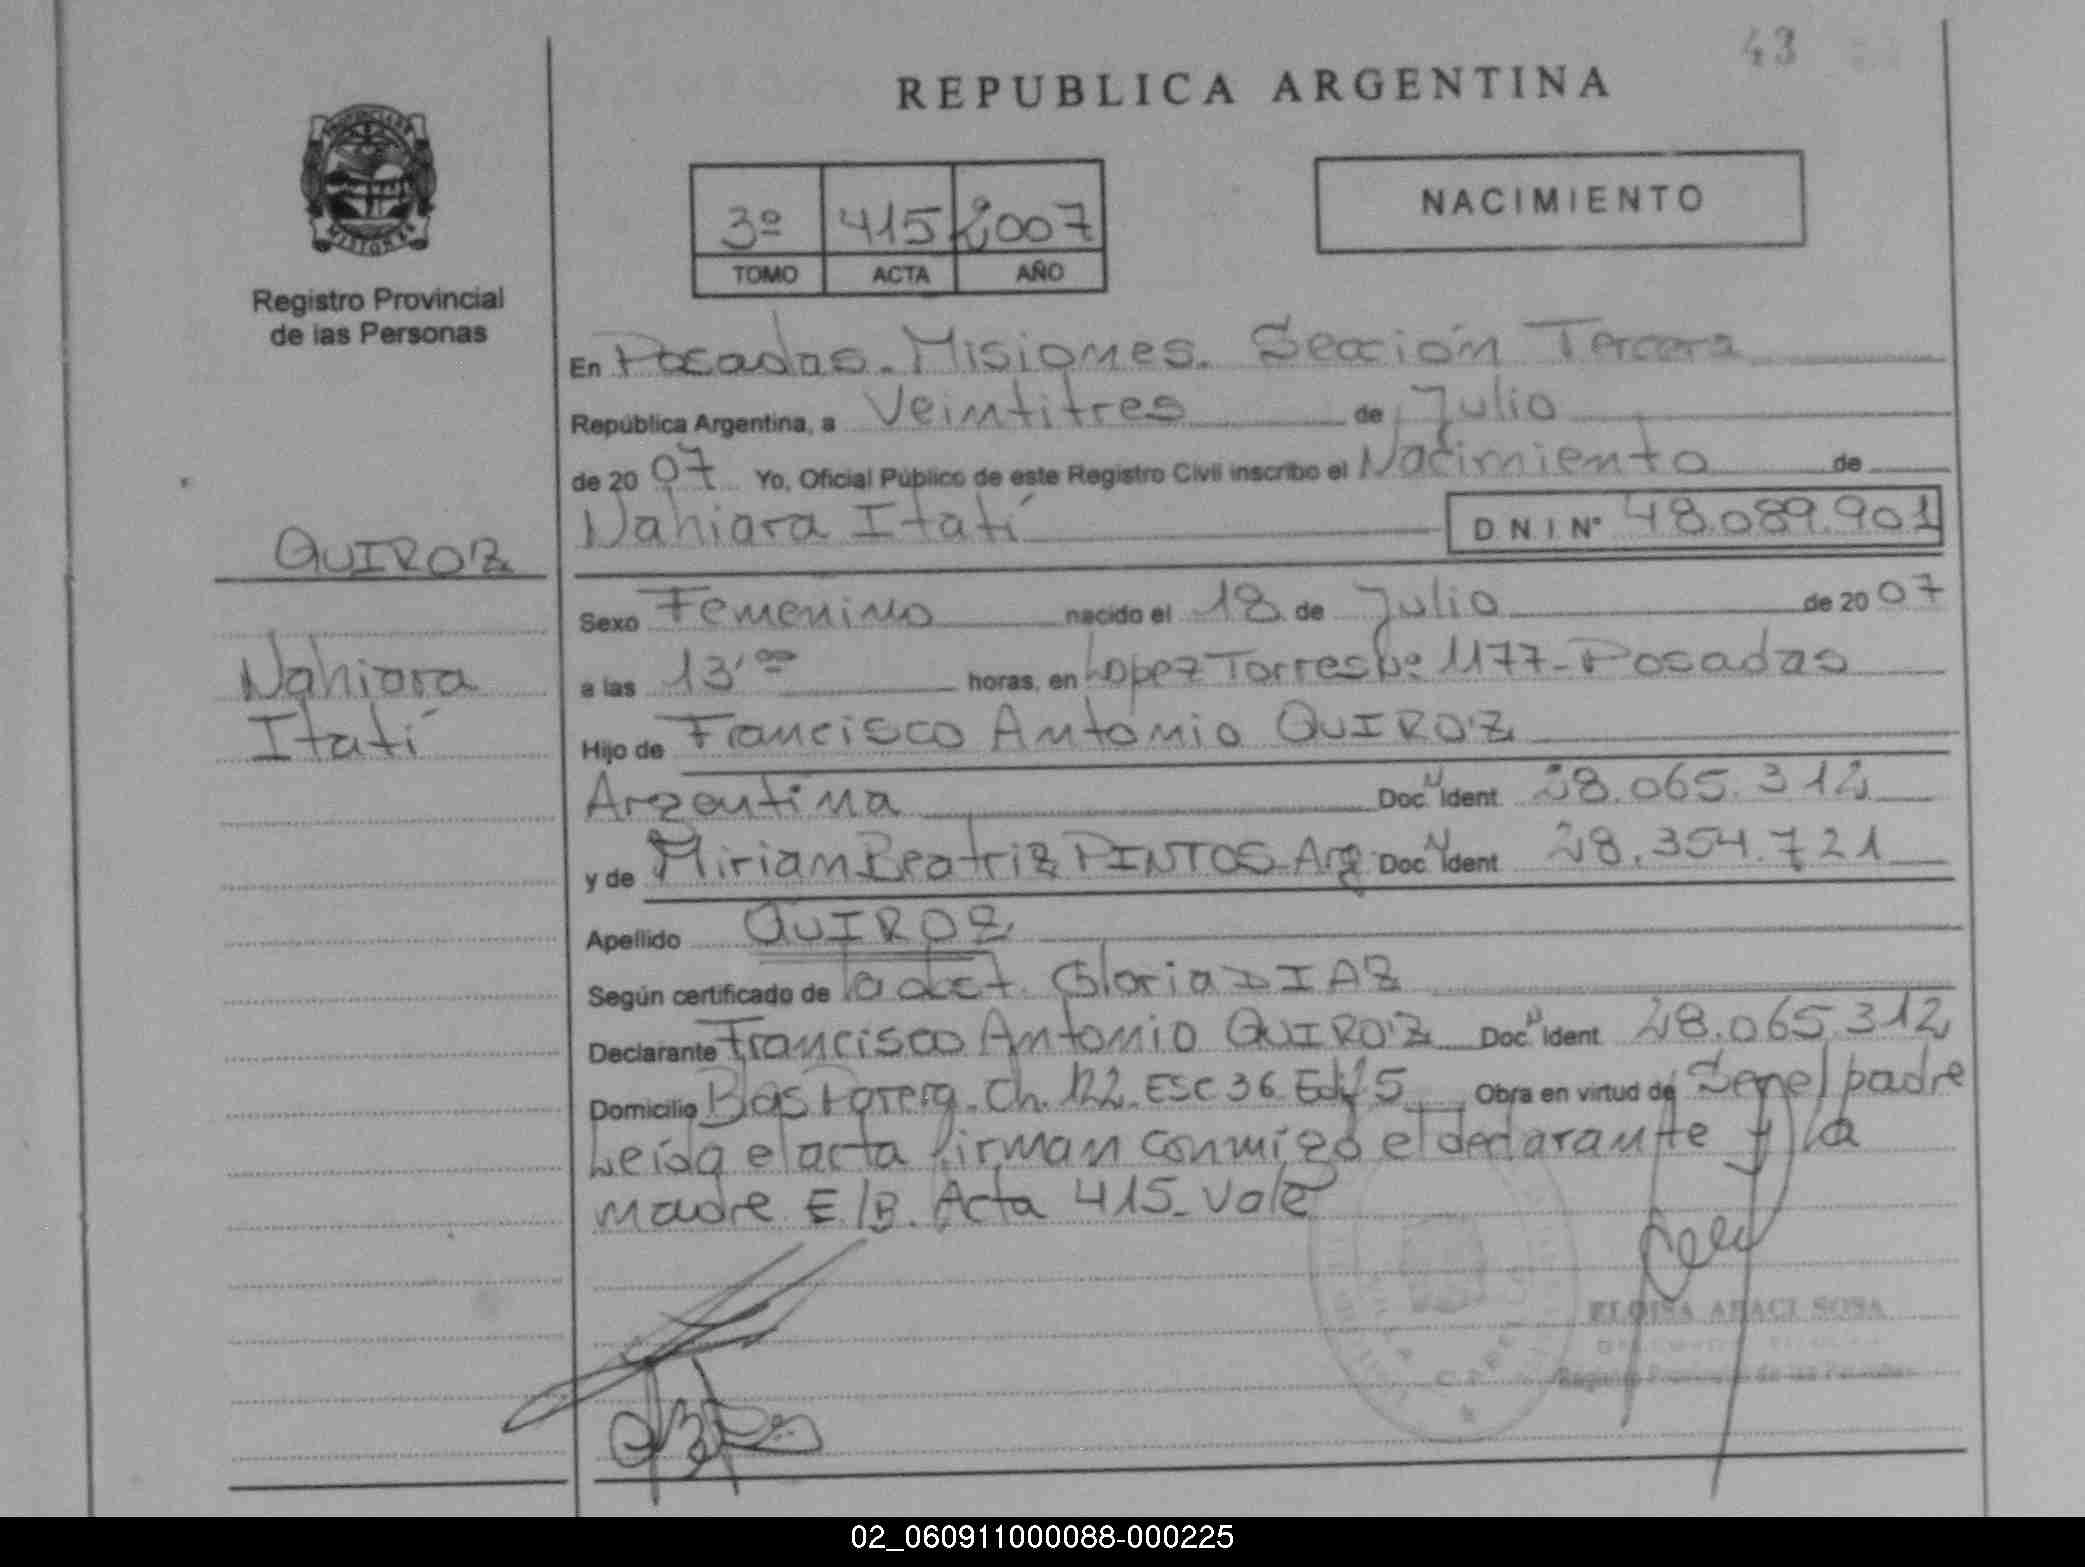 43
REPUBLICA ARGENTINA
PROVINCIA DE
MISIONES
Registro Provincial
de las Personas
NACIMIENTO
3º 415 2007
TOMO ACTA AÑO
En Posadas. Misiones. Sección Tercera
República Argentina, a Veintitres de Julio
de 20 07 Yo, Oficial Público de este Registro Civil inscribo el Nacimiento de
QUIROZ
Nahiara Itatí D N I Nº 48.089.901
Sexo Femenino nacido el 18 de Julio de 20 07
Nahiara
a las 13,ºº horas, en Lopez Torres Nº 1177 - Posadas
Itatí
Hijo de Francisco Antonio QUIROZ
Argentina Doc. Ident 28.065.312
y de Mirian Beatriz PINTOS - Arg. Doc. Ident 28.354.721
Apellido QUIROZ
Según certificado de la obst. Gloria DIAZ
Declarante Francisco Antonio QUIROZ Doc. Ident 28.065.312
Domicilio Ch. 122. Esc 36 Edif 5 Obra en virtud de Ser el padre
Leída el acta firman conmigo el declarante y la
madre E/B. Acta 415 - Vale
SOSA
Registro Provincial de las Personas
02_060911000088-000225